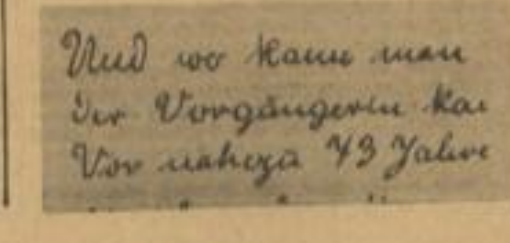 Und wo kann man
der Vorgängerin
Vor nahezu 43 Jahre